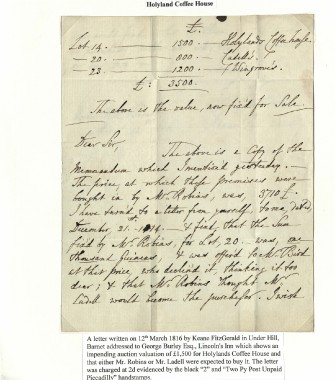 Holyland Coffee House
£.
Lot 14. — 1500 — Holylands Coffee house
— 20 — 800 — Cadell's.
— 23 — 1200 —
£: 3500.
The above is the value, now fixed for Sale.
Dear Sir,
The above is a Copy of the
Memorandum which I mentioned yesterday. —
The price, at which those premises were
bought in by Mr. Robins, was 3710 £.
I have turn'd to a letter from yourself to me, dated
December, 21. 1814 — & find, that the Sum
fixed by Mr. Robins, for Lot, 20 — was, one
thousand guineas, & was offer'd to Mr. Bish
at that price, who declin'd it, thinking it too
dear; & that Mr. Robins thought Mr.
Cadell would become the purchaser. I wish
A letter written on 12th March 1816 by Keane FitzGerald in Under Hill,
Barnet addressed to George Burley Esq., Lincoln's Inn which shows an
impending auction valuation of £1,500 for Holylands Coffee House and
that either Mr. Robins or Mr. Ladell were expected to buy it. The letter
was charged at 2d evidenced by the black "2" and "Two Py Post Unpaid
Piccadilly" handstamps.